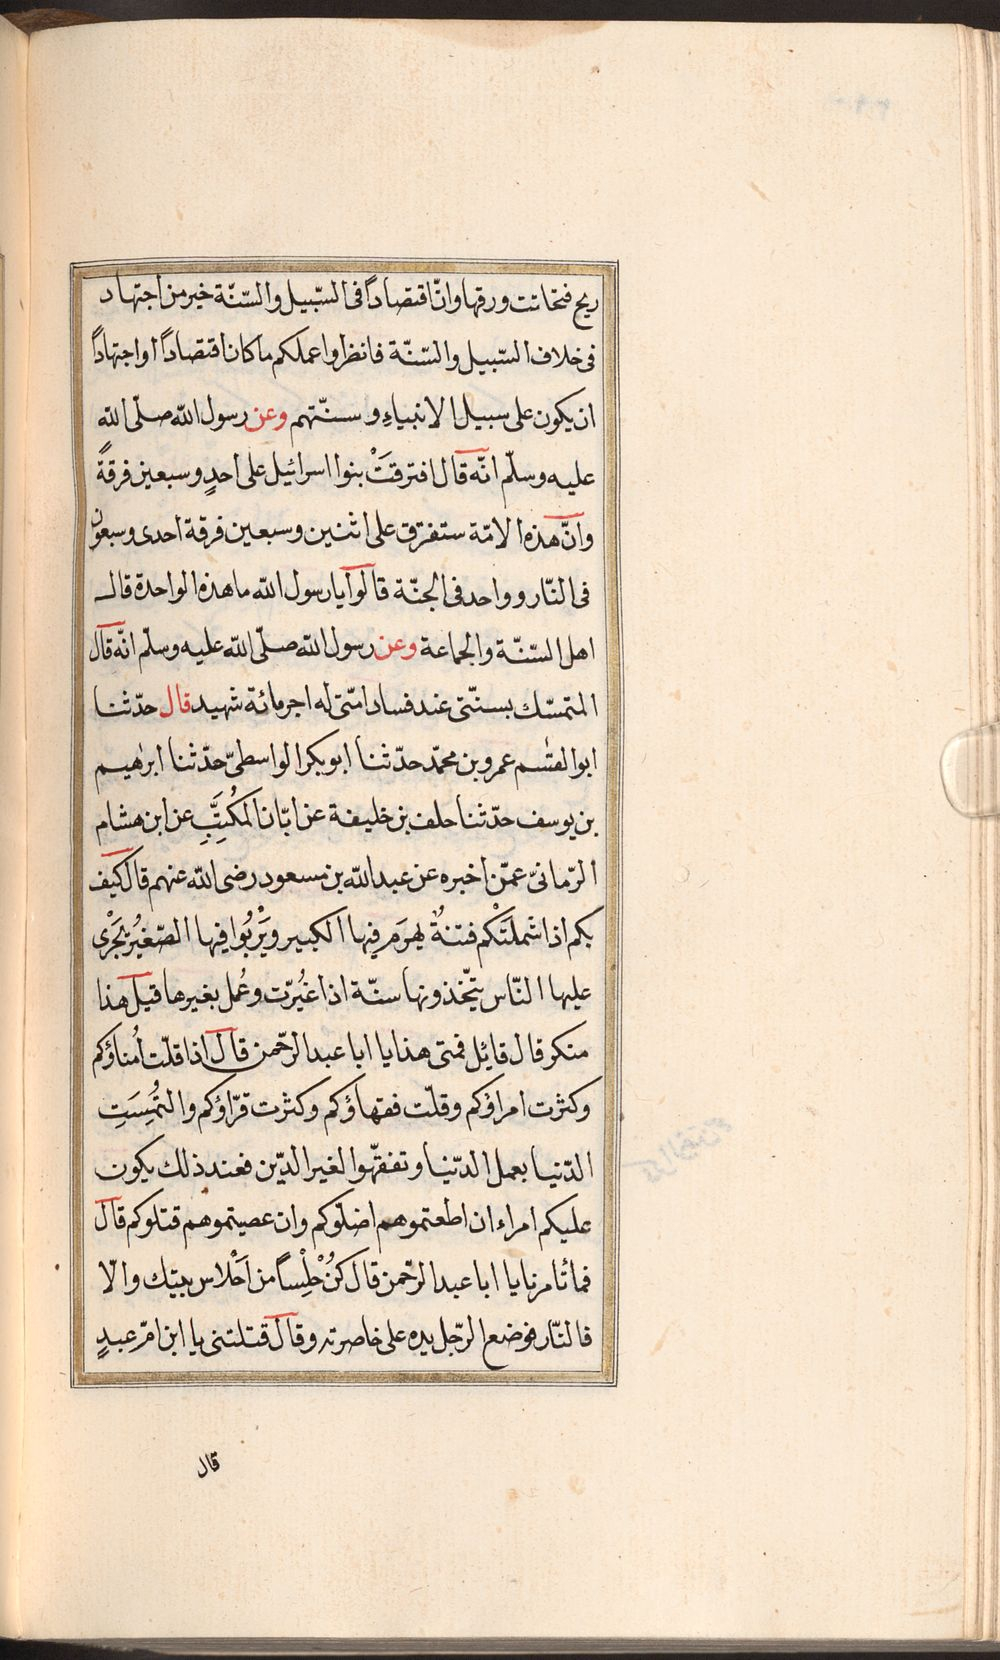 ريح فتحاتت ورقها وانّ اقتصاداً فى السّبيل والسّنّة خير من اجتهاد
فى خلاف السّبيل والسّنّة فانظروا عملكم ما كان اقتصاداً او اجتهاداً
ان يكون على سبيل الانبياء وسنّتهم وعن رسول الله صلّى الله
عليه وسلّم انّه قال افترقَتْ بنوا اسرائيل على احدٍ وسبعين فرقةً
وانّ هذه الامّة ستفترق على اثنين وسبعين فرقة احدى وسبعون
فى النّار وواحد فى الجنّة قالوا يا رسول الله ما هذه الواحدة قال
اهل السّنّة والجماعة وعن رسول الله صلّى الله عليه وسلّم انّه قال
المتمسّك بسنّتى عند فساد امّتى له اجر مائة شهيد قال حدّثنا
ابو القسٰم عمرو بن محمّد حدّثنا ابو بكر الواسطىّ حدّثنا ابرٰهيم
بن يوسف حدّثنا خلف بن خليفة عن ابّان المُكَتِّبِ عن ابن هشام
الرّمّانىّ عمّن اخبره عن عبد الله بن مسعود رضى الله عنهم قال كيف
بكم اذا شملَتْكم فتنةٌ يهرَم فيها الكبير ويَرْبُوا فيها الصّغيرُ يَجْرى
عليها النّاس يتّخذونها سنّة اذا غُيِّرت وعُمل بغيرها قيل هذا
منكر قال قائل فمتى هذا يا ابا عبد الرّحمن قال اذا قلّت اُمناؤكم
وكثرت امراؤكم وقلّت فقهاؤكم وكثرت قرّاؤكم والتُمِسَتِ
الدّنيا بعمل الدّنيا وتفقّهوا لغير الدّين فعند ذلك يكون
عليكم امراء ان اطعتموهم اضلّوكم وان عصيتموهم قتلوكم قال
فما تأمرنا يا ابا عبد الرّحمن قال كُنْ حِلْساً من اَحْلاس بيتك والّا
فالنّار فوضع الرّجل يده على خاصرته وقال قتلتنى يا ابن امّ عبدٍ
قال